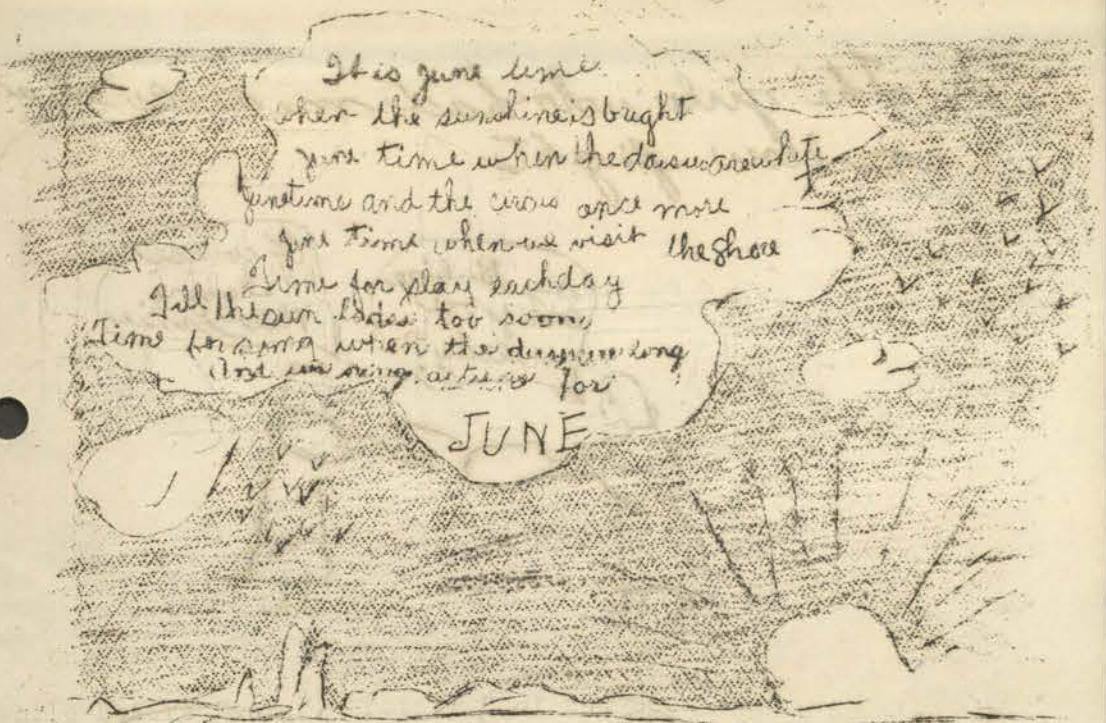 It is june time
when the sunshine is bright
june time when the daisies are white
junetime and the circus once more
june time when we visit the shore
Time for play eachday
Till the sun fades too soon,
Time for song when the days are long
And we sing a tune for
JUNE